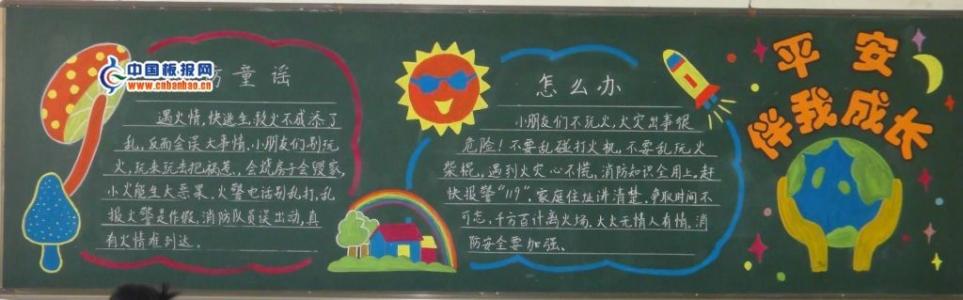 中国板报网
www.cnbanbao.cn
防童谣
遇火情,快逃生,救火不成添了
乱,反而会误大事情。小朋友们别玩
火,玩来玩去把祸惹,会烧房子会毁家,
小火能生大恶果。火警电话别乱打,乱
报火警是作假,消防队员误出动,真
有火情难到达。
怎么办
小朋友们不玩火,火灾出事很
危险!不要乱碰打火机,不要乱玩火
柴棍,遇到火灾心不慌,消防知识全用上。赶
快报警"119",家庭住址讲清楚,争取时间不
可忘,千方百计离火场,大火无情人有情,消
防安全要加强。
平安
伴我成长